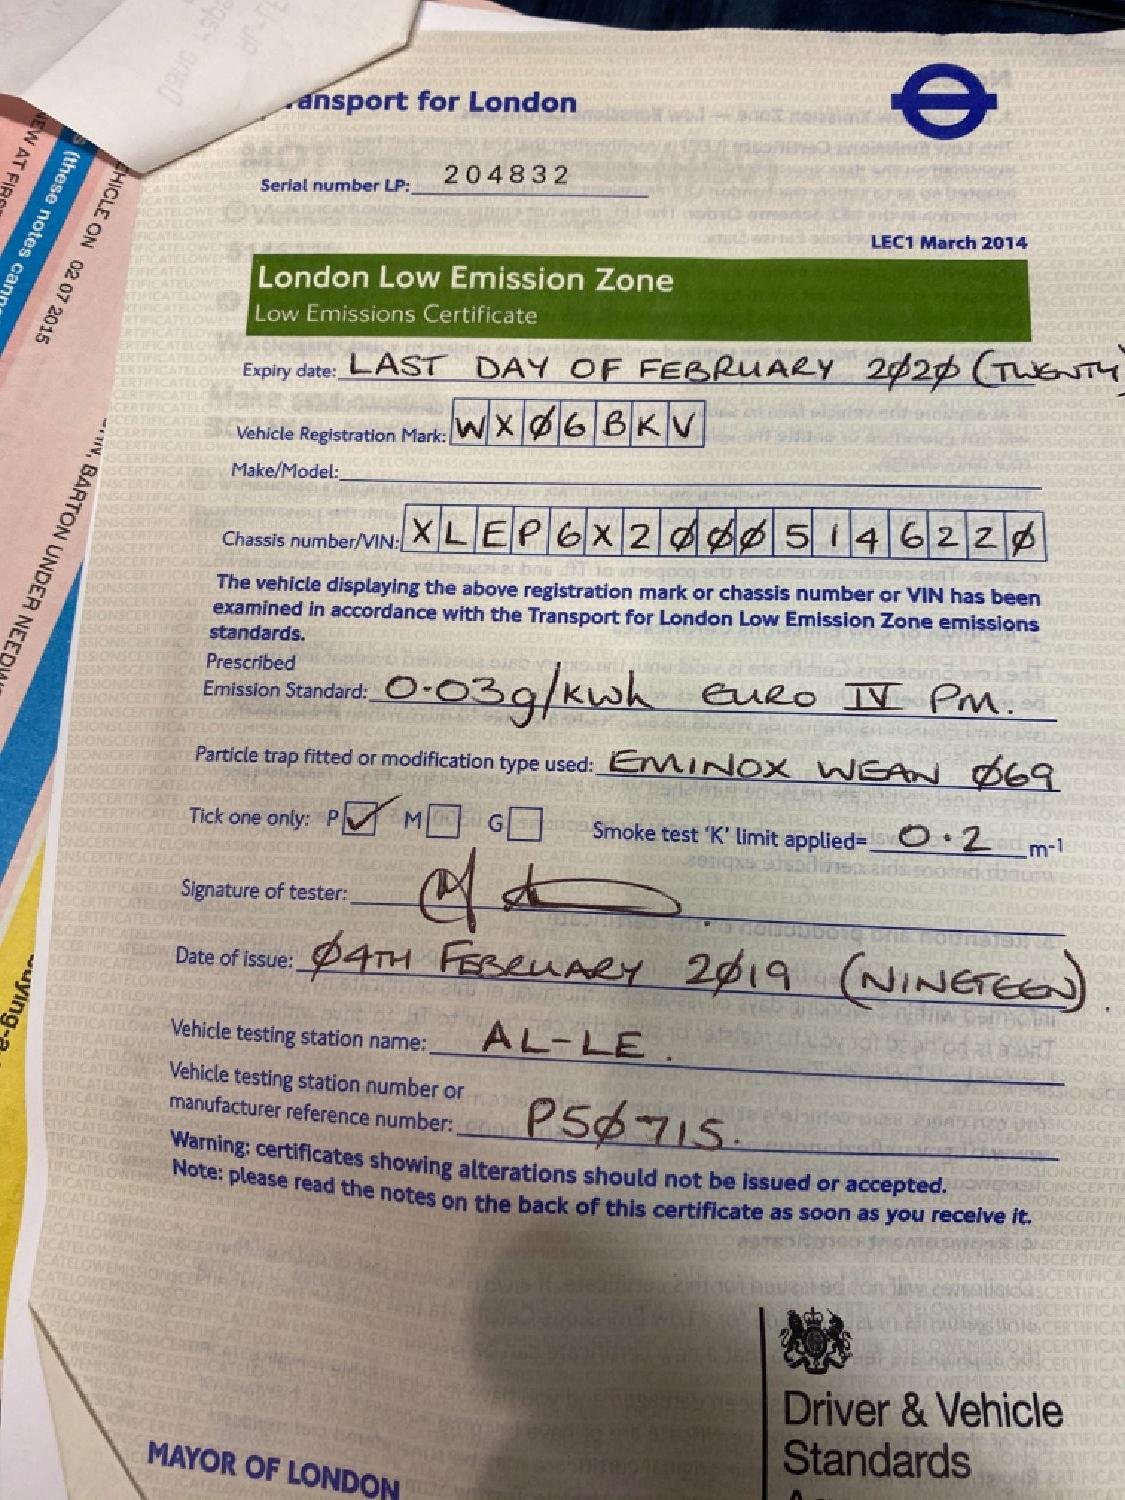 Transport for London
Serial number LP: 204832
LEC1 March 2014
London Low Emission Zone
Low Emissions Certificate
Expiry date: LAST DAY OF FEBRUARY 2020 (TWENTY)
Vehicle Registration Mark: WX06BKV
Make/Model:
Chassis number/VIN: XLEP6X20005146220
The vehicle displaying the above registration mark or chassis number or VIN has been
examined in accordance with the Transport for London Low Emission Zone emissions
standards.
Prescribed
Emission Standard: 0.03g/kwh EURO IV PM.
Particle trap fitted or modification type used: EMINOX WEAN 069
Tick one only: P M G Smoke test 'K' limit applied= 0.2 m-1
Signature of tester:
Date of issue: 04TH FEBRUARY 2019 (NINETEEN).
Vehicle testing station name: AL-LE.
Vehicle testing station number or
manufacturer reference number: P50715.
Warning: certificates showing alterations should not be issued or accepted.
Note: please read the notes on the back of this certificate as soon as you receive it.
MAYOR OF LONDON
Driver & Vehicle
Standards
NEW AT FIRST
(these notes
VEHICLE ON 02 07 2015
BARTON UNDER